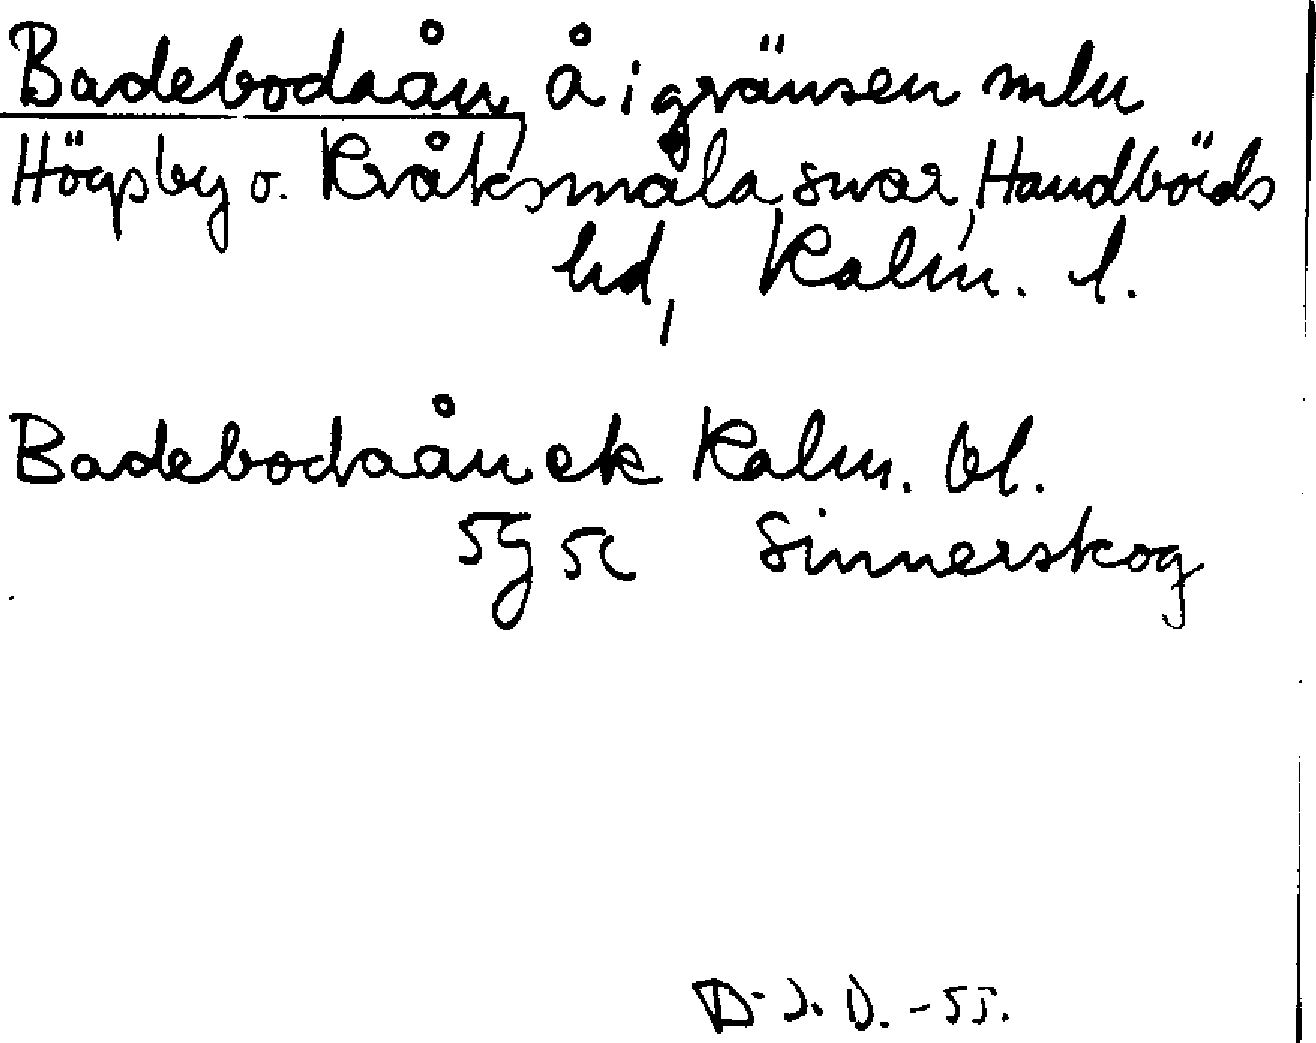 Badebodaån, å i gränsen mln
Högsby o. Kråksmåla snar, Handbörds
hd, Kalm. l.
Badebodaån ek Kalm. bl.
5g 5c Sinnerskog
D. J. D. -55.